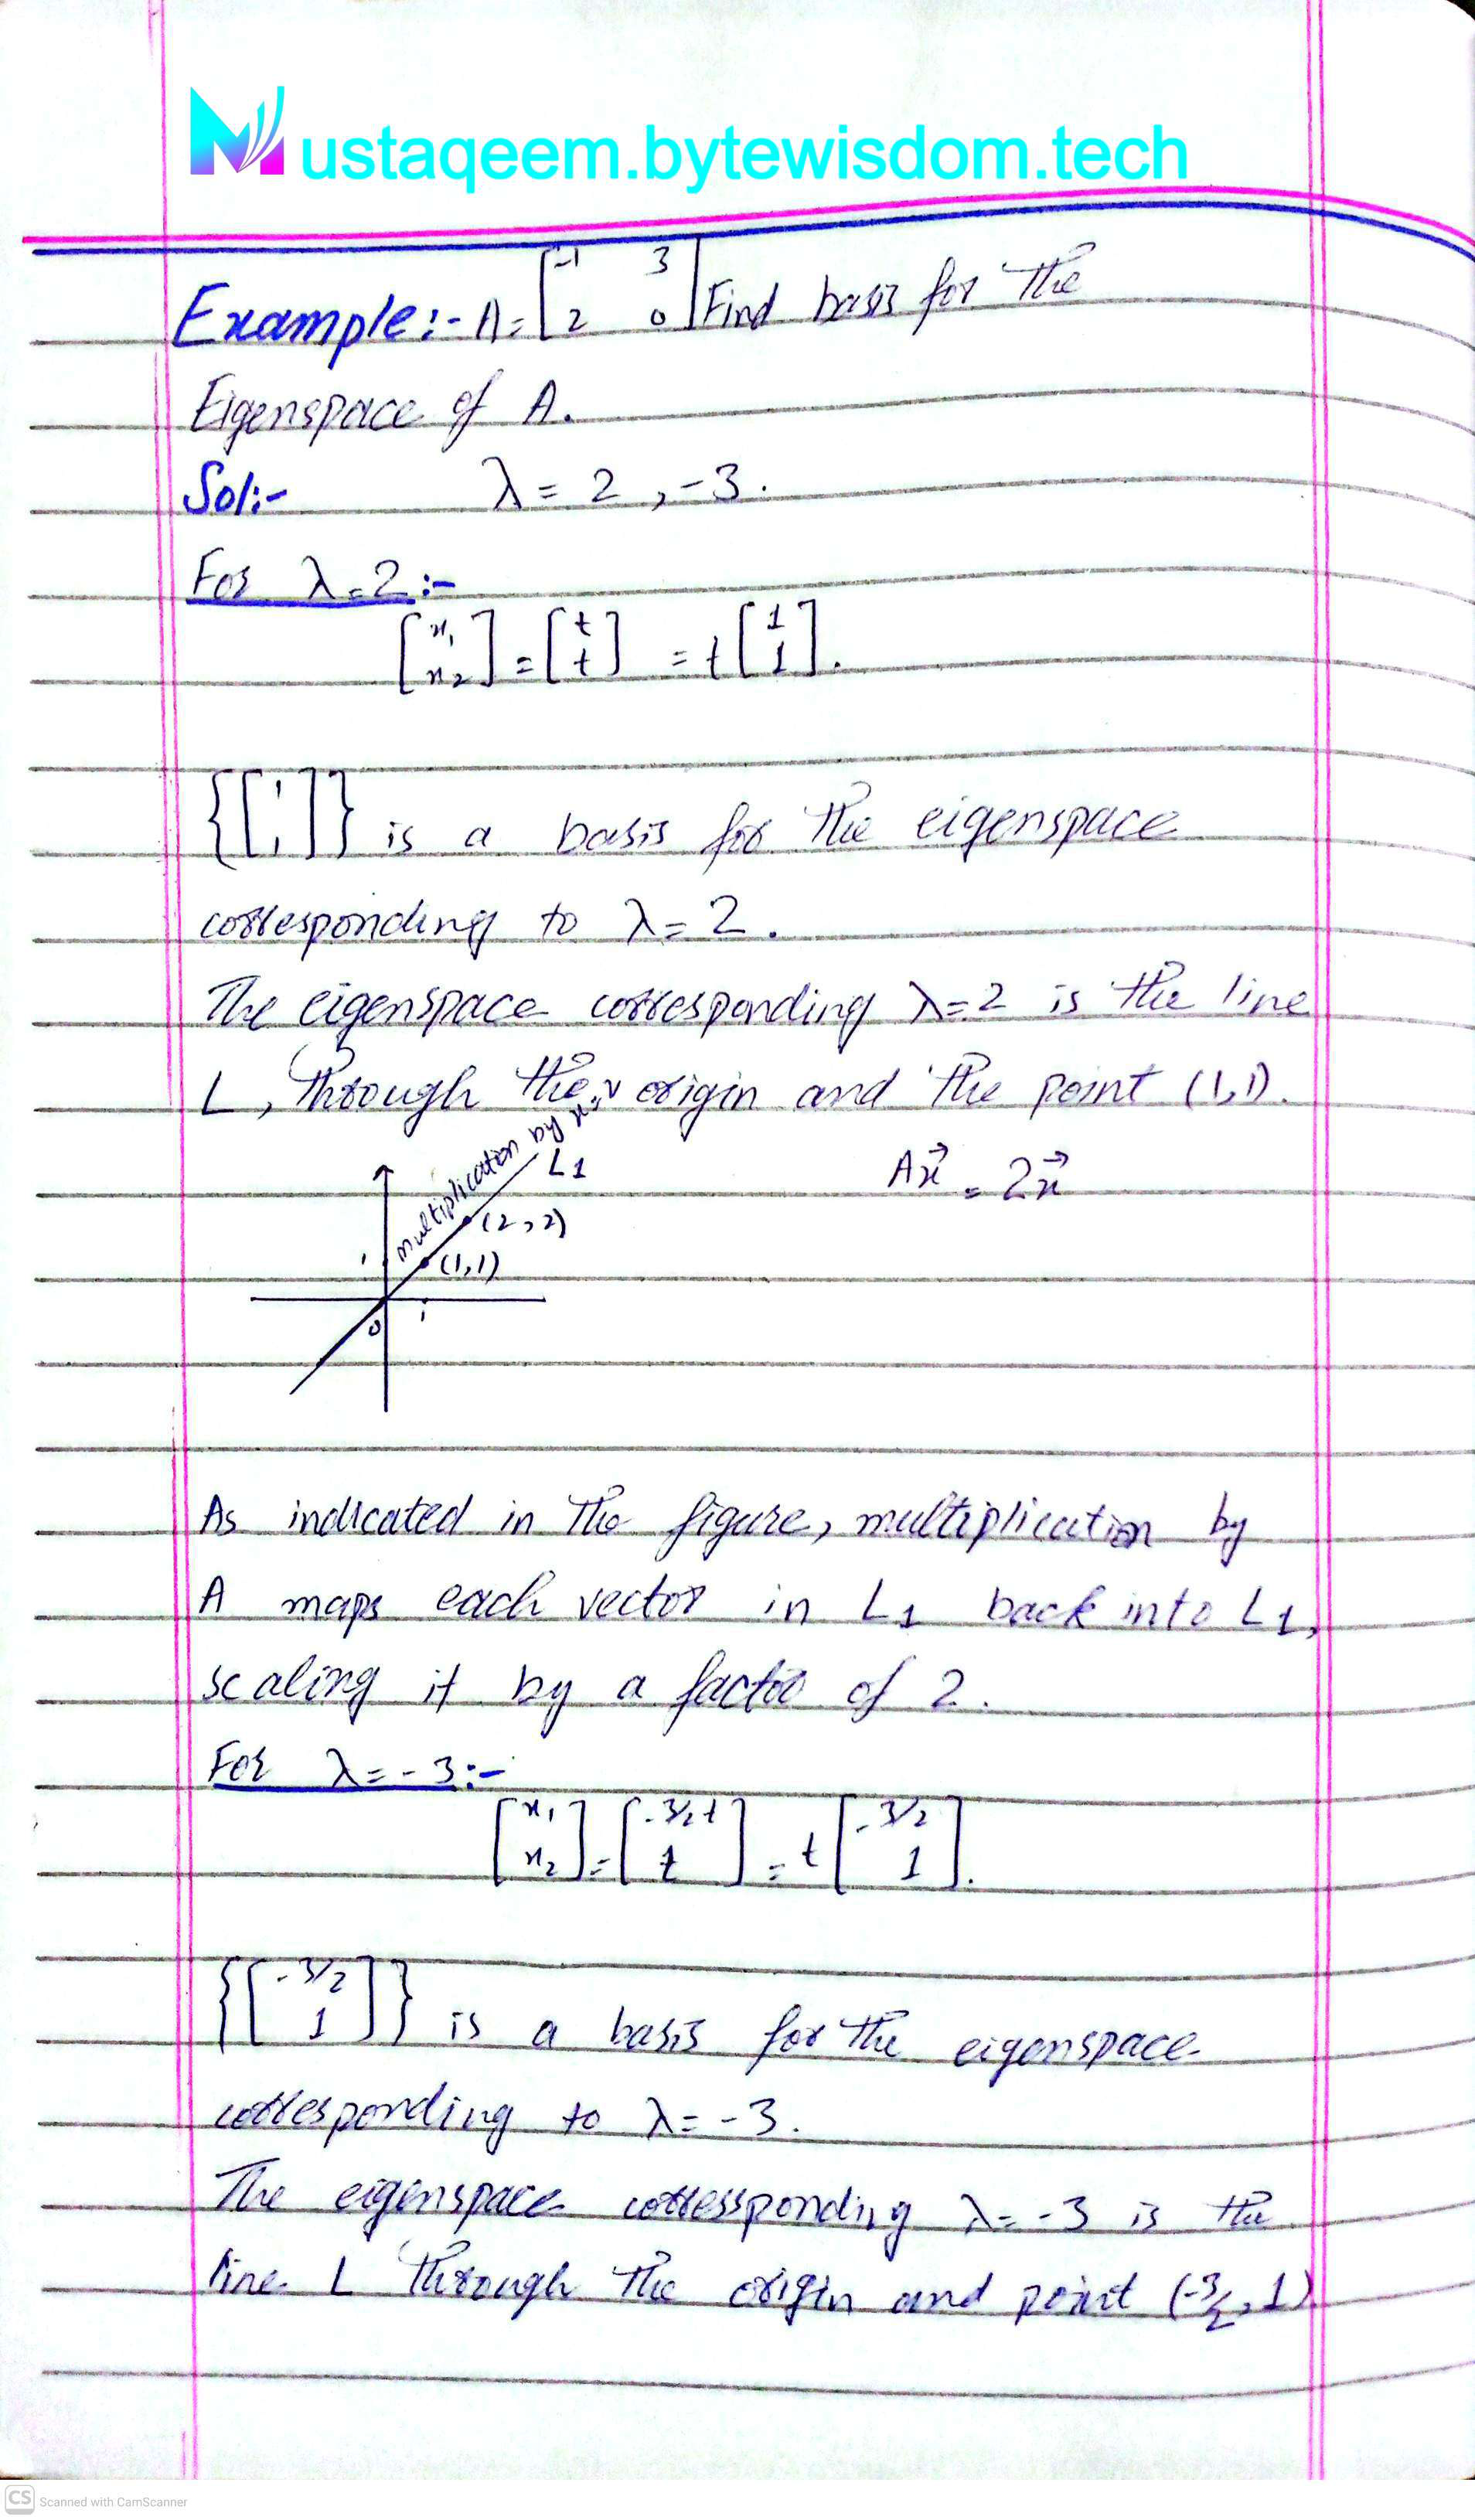 Mustaqeem.bytewisdom.tech
Example:- A = [-1 3
2 0] Find basis for the
Eigenspace of A.
Sol:- λ = 2, -3.
For λ = 2 :-
[x₁ x₂] = [t t] = t[1 1].
{[1 1]} is a basis for the eigenspace
corresponding to λ = 2.
The eigenspace corresponding λ = 2 is the line
L, Through the origin and the point (1,1).
multiplication by
L1
Ax⃗ = 2x⃗
(2,2)
1
(1,1)
0 1
As indicated in The figure, multiplication by
A maps each vector in L1 back into L1,
scaling it by a factor of 2.
For λ = -3 :-
[x₁ x₂] = [-3/2 t t] = t[-3/2 1].
{[-3/2 1]} is a basis for the eigenspace
corresponding to λ = -3.
The eigenspace corressponding λ = -3 is the
line L Through The origin and point (-3/2, 1)
CS Scanned with CamScanner